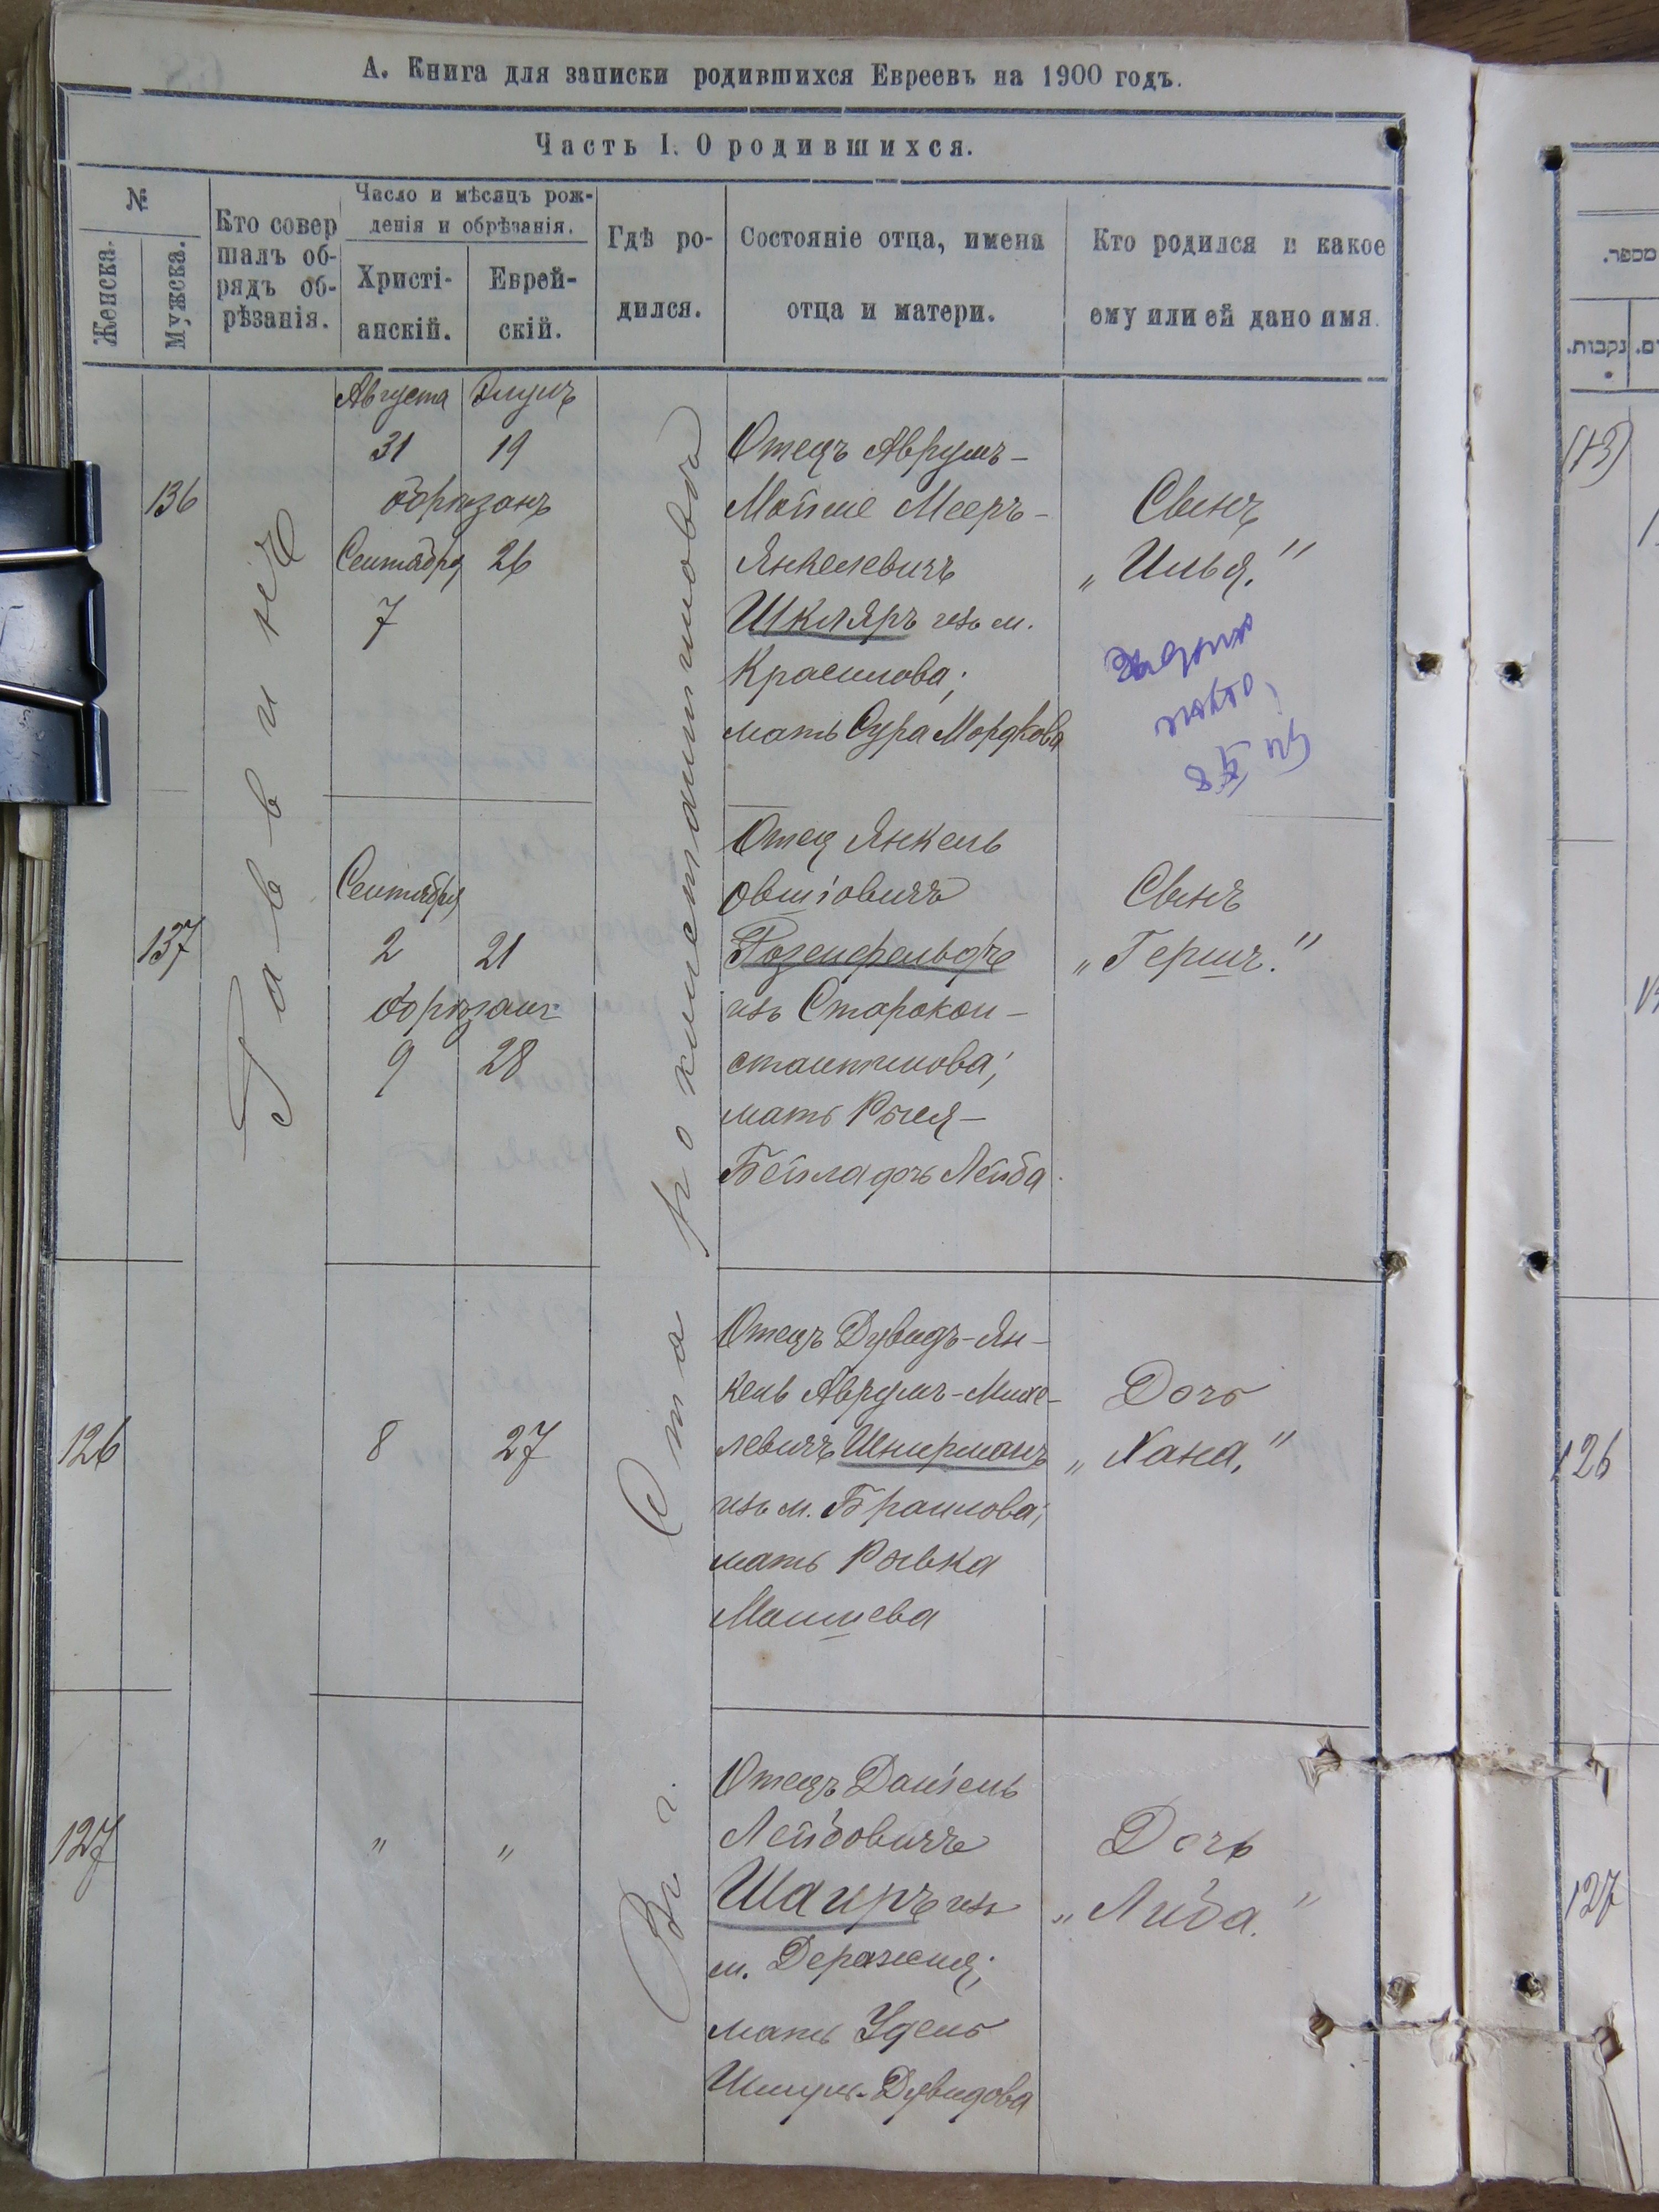 А. Книга для записки родившихся Евреевъ на 1900 годъ.
Часть I. О родившихся.
№
Женска.
Мужска.
Кто совер
шалъ об-
рядъ об-
рѣзанія.
Число и мѣсяцъ рож-
денія и обрѣзанія.
Христі-
анскій.
Еврей-
скій.
Гдѣ ро-
дился.
Состояніе отца, имена
отца и матери.
Кто родился и какое
ему или ей дано имя.
Раввинъ
Въ г. Староконстантиновѣ
136
Августа
31
обрѣзанъ
Сентября
7
Элулъ
19
26
Отецъ Аврумъ-
Мойше Мееръ-
Янкелевичъ
Шкляръ изъ м.
Красилова;
мать Сура Мордкова
Сынъ
„Илья."
137
Сентября
2
обрѣзанъ
9
21
28
Отец Янкель
Овшіовичъ
Розенфельдъ
изъ Старокон-
стантинова;
мать Рыся-
Бейла дочь Лейба
Сынъ
„Гершъ."
126
8
27
Отецъ Дувидъ-Ян-
кель Аврумъ-Михе-
левичъ Шнирманъ
изъ м. Браилова;
мать Рывка
Мошкова
Дочь
„Хана,"
127
"
"
Отецъ Даніель
Лейбовичъ
Шаиръ изъ
м. Деражня;
мать Удель
Шмуль-Дувидова
Дочь
„Либа."
מספר.
נקבות.
126
127